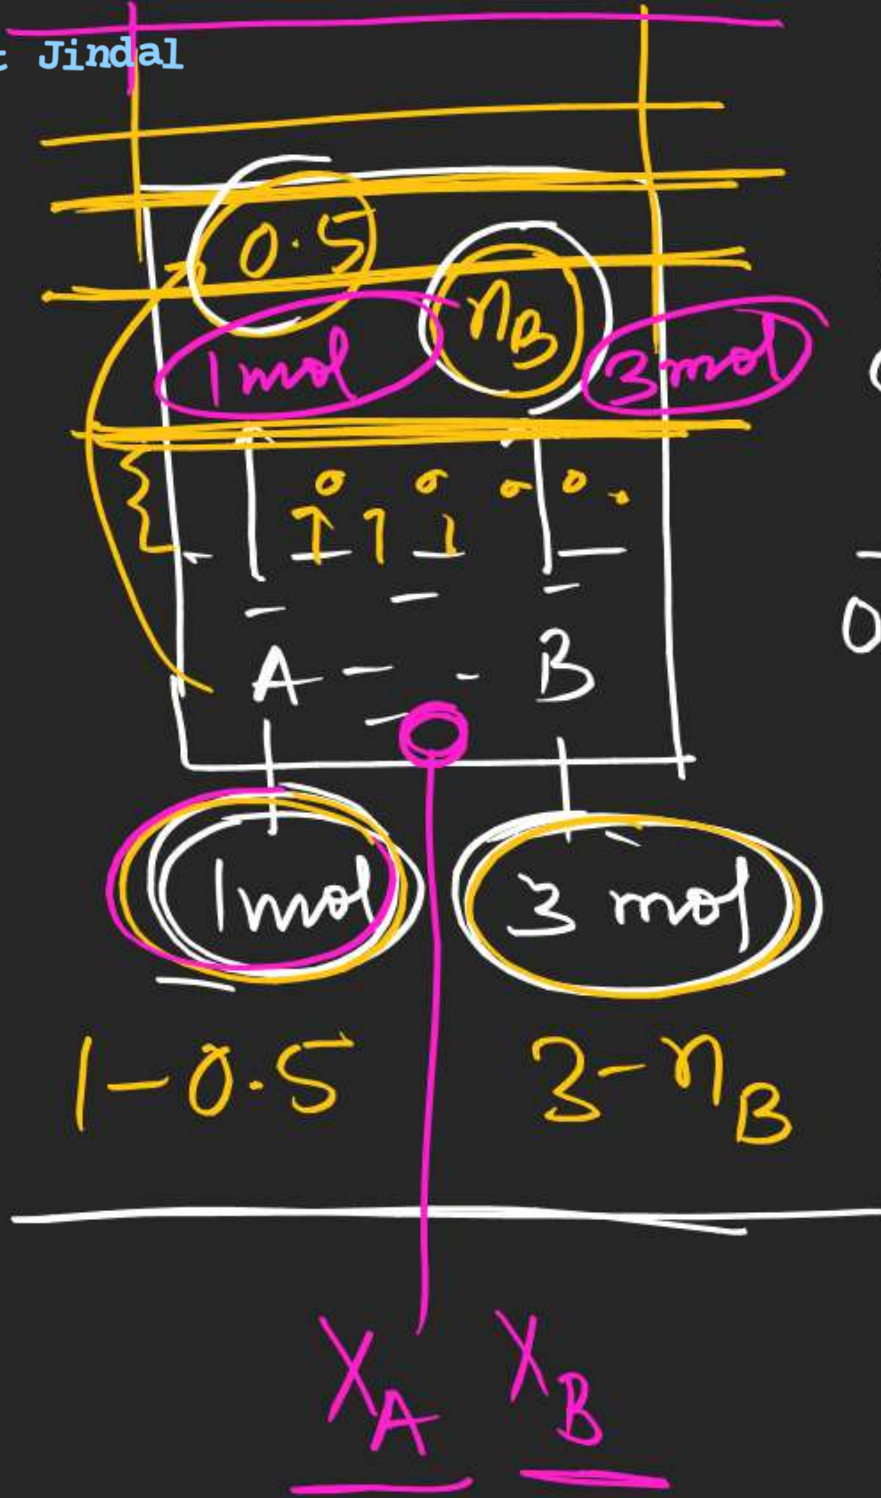 t Jindal
0.5 nB
1 mol 3 mol
A B
1 mol 3 mol
1-0.5 3-nB
XA XB